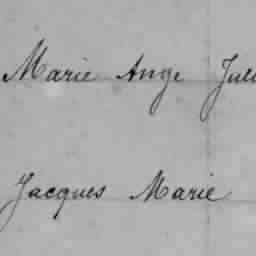 Marie Ange
Jacques Marie